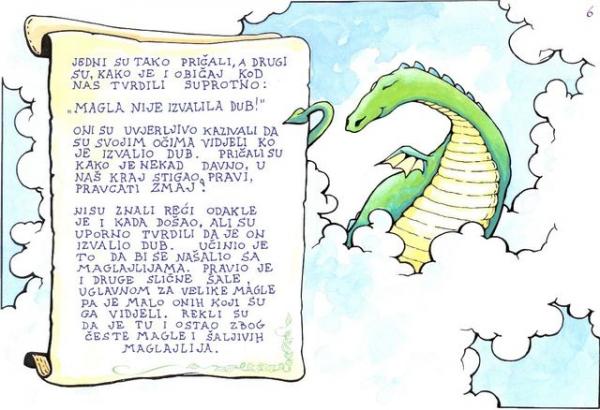 6
JEDNI SU TAKO PRIČALI, A DRUGI
SU, KAKO JE I OBIČAJ KOD
NAS TVRDILI SUPROTNO:
„MAGLA NIJE IZVALILA DUB!"
ONI SU UVJERLJIVO KAZIVALI DA
SU SVOJIM OČIMA VIDJELI KO
JE IZVALIO DUB. PRIČALI SU
KAKO JE NEKAD DAVNO, U
NAŠ KRAJ STIGAO, PRAVI,
PRAVCATI ZMAJ!
NISU ZNALI REĆI ODAKLE
JE I KADA DOŠAO, ALI SU
UPORNO TVRDILI DA JE ON
IZVALIO DUB. UČINIO JE
TO DA BI SE NAŠALIO SA
MAGLAJLIJAMA. PRAVIO JE
I DRUGE SLIČNE ŠALE,
UGLAVNOM ZA VELIKE MAGLE
PA JE MALO ONIH KOJI SU
GA VIDJELI. REKLI SU
DA JE TU I OSTAO ZBOG
ČESTE MAGLE I ŠALJIVIH
MAGLAJLIJA.